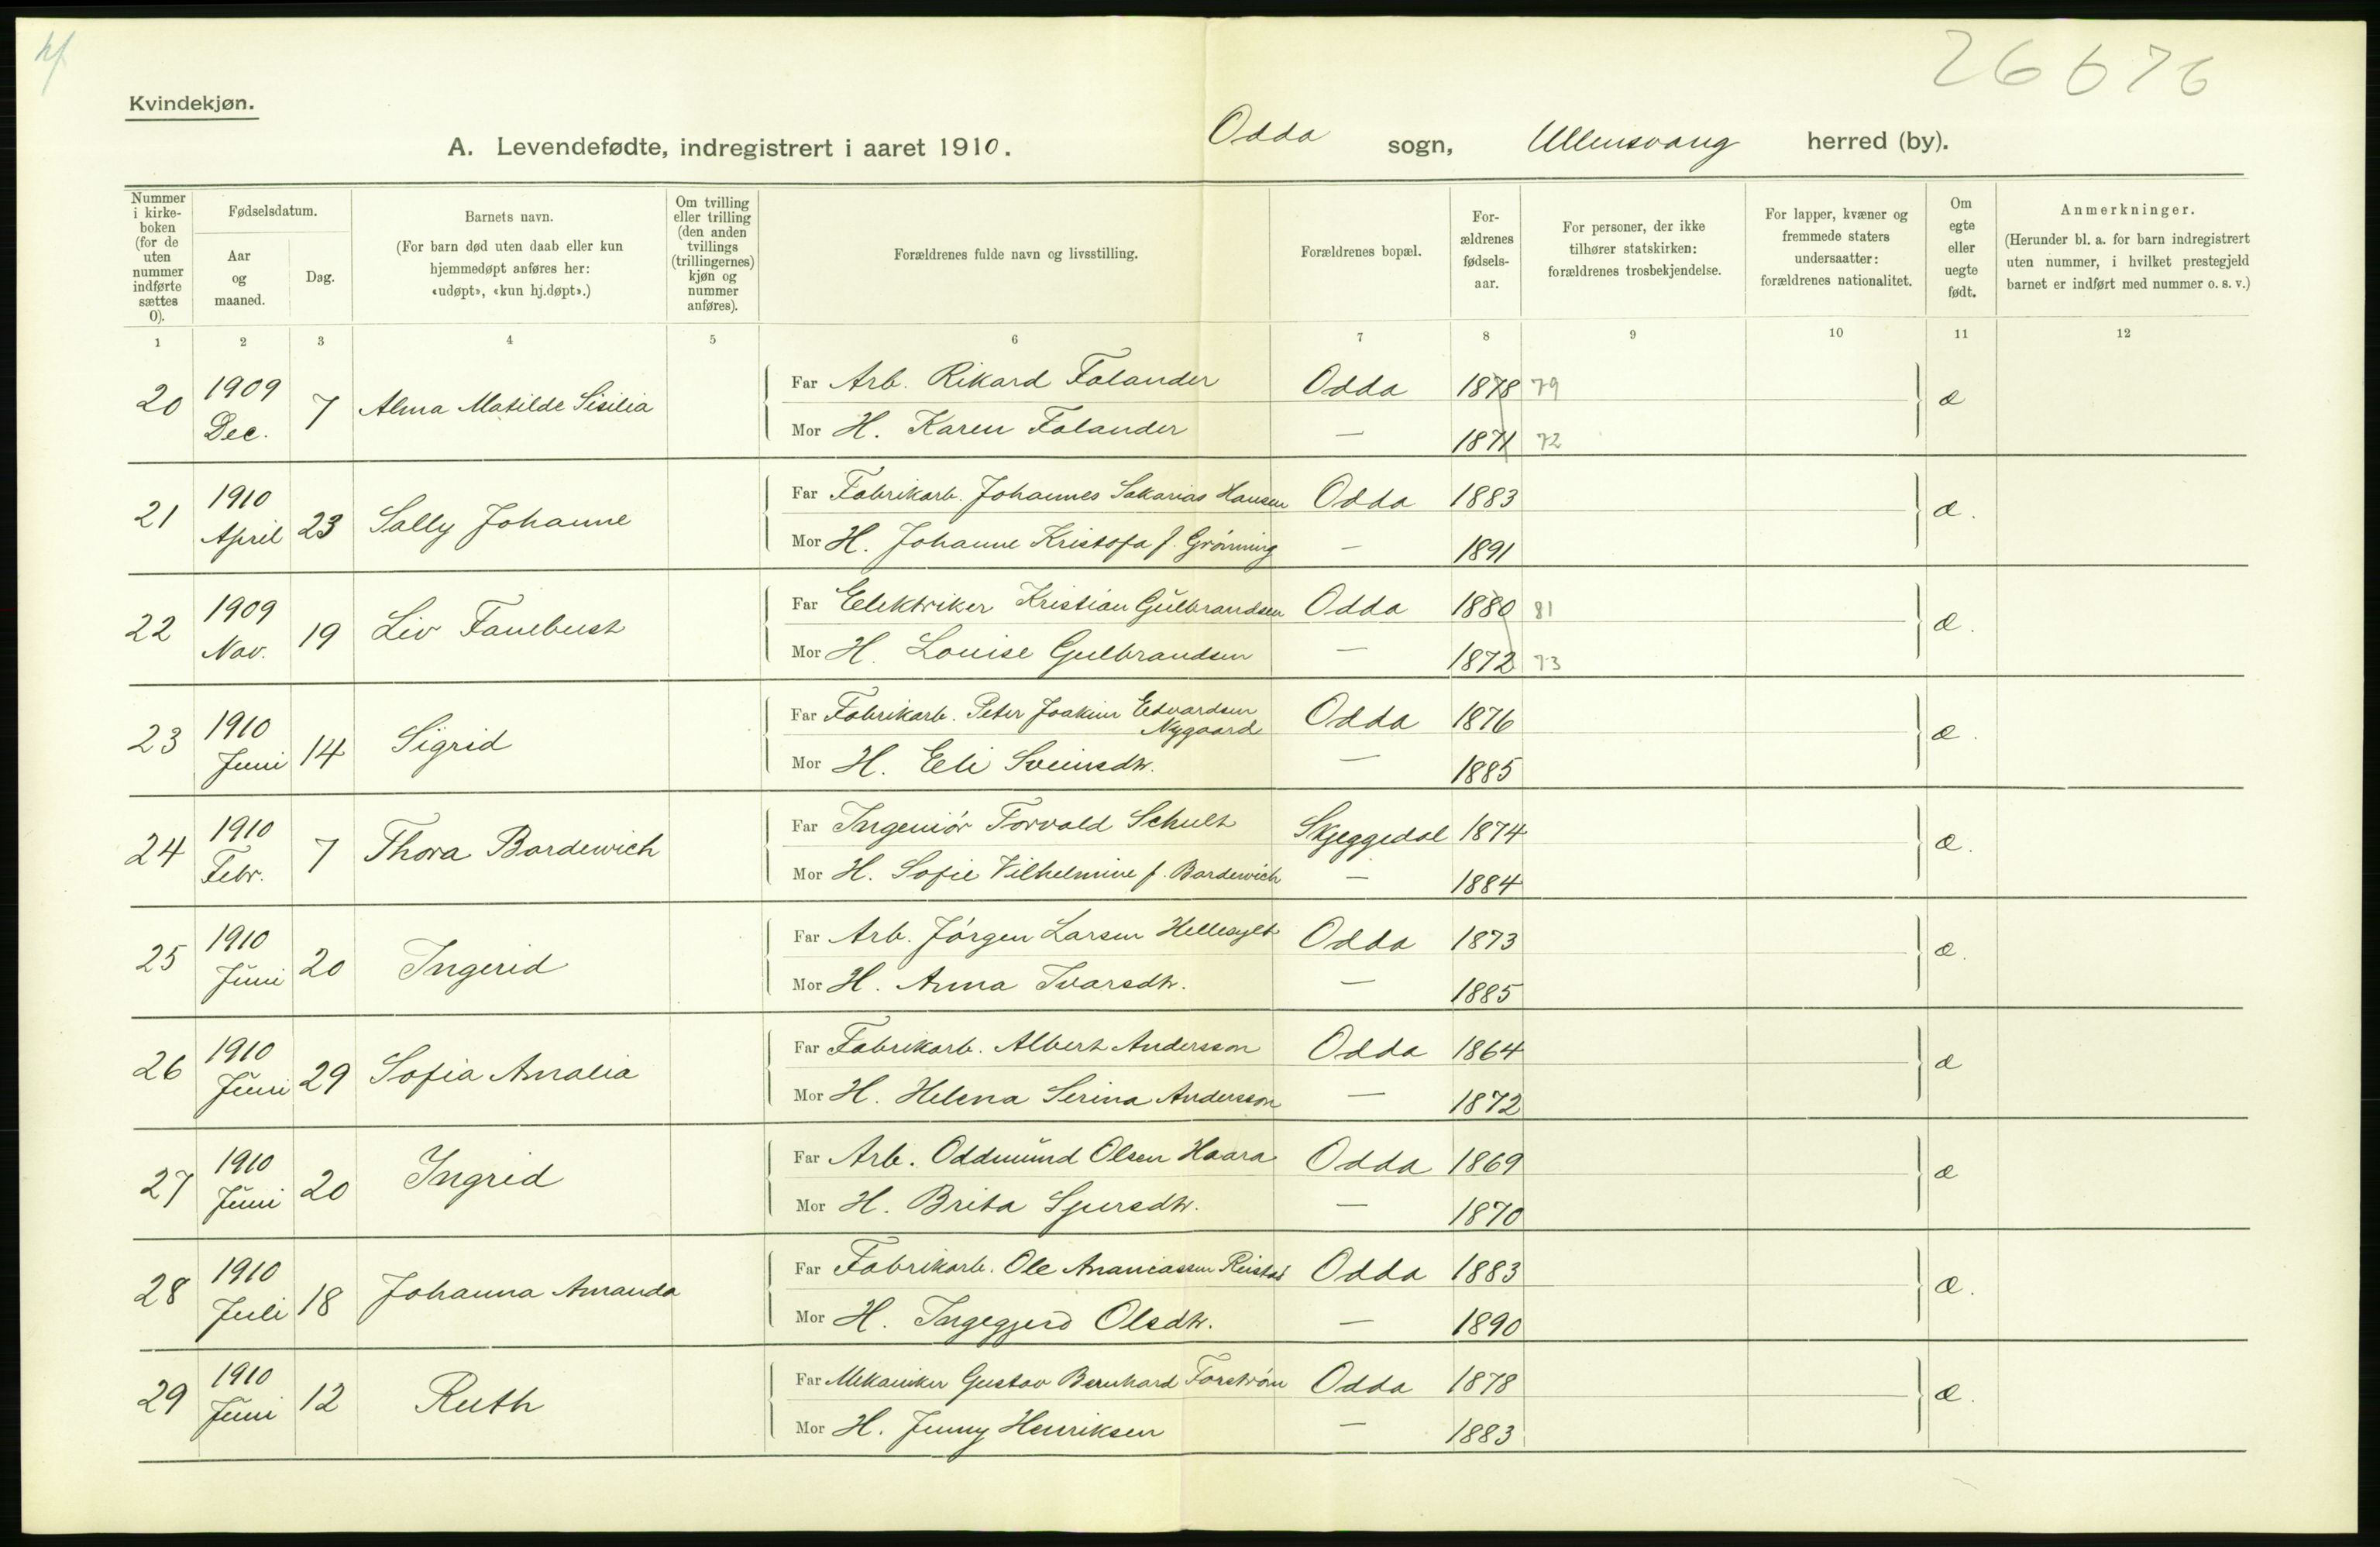 26676
Kvindekjøn.
A. Levendefødte, indregistrert i aaret 1910. Odda sogn, Ullensvang herred (by).
Nummer i kirke-boken (for de uten nummer indførte sættes 0).
Fødselsdatum.
Aar og maaned.
Dag.
Barnets navn.
(For barn død uten daab eller kun hjemmedøpt anføres her: «udøpt», «kun hj.døpt».)
Om tvilling eller trilling (den anden tvillings (trillingernes) kjøn og nummer anføres).
Forældrenes fulde navn og livsstilling.
Forældrenes bopæl.
For-ældrenes fødsels-aar.
For personer, der ikke tilhører statskirken: forældrenes trosbekjendelse.
For lapper, kvæner og fremmede staters undersaatter: forældrenes nationalitet.
Om egte eller uegte født.
Anmerkninger.
(Herunder bl. a. for barn indregistrert uten nummer, i hvilket prestegjeld barnet er indført med nummer o. s. v.)
1 2 3 4 5 6 7 8 9 10 11 12
20 1909 Dec. 7 Alma Matilde Sisilia Far Arb. Rikard Folander Odda 1878 79 æ
Mor H. Karen Folander — 1871 72
21 1910 April 23 Sally Johanne Far Fabrikarb. Johannes Sakarias Hansen Odda 1883 æ.
Mor H. Johanne Kristofa f. Grønning — 1891
22 1909 Nov. 19 Liv Fanebust Far Elektriker Kristian Gulbrandsen Odda 1880 81 æ.
Mor H. Louise Gulbrandsen — 1872 73
23 1910 Juni 14 Sigrid Far Fabrikarb. Peter Joakim Edvardsen Nygaard Odda 1876 æ.
Mor H. Eli Sveinsdtr. — 1885
24 1910 Febr. 7 Thora Bardewich Far Ingeniør Torvald Schult Skjeggedal 1874 æ.
Mor H. Sofie Vilhelmine f. Bardewich — 1884
25 1910 Juni 20 Ingerid Far Arb. Jørgen Larsen Hellesylt Odda 1873 æ.
Mor H. Anna Ivarsdtr. — 1885
26 1910 Juni 29 Sofia Amalia Far Fabrikarb. Albert Andersson Odda 1864 æ
Mor H. Helena Serina Andersson — 1872
27 1910 Juni 20 Ingrid Far Arb. Oddmund Olsen Haara Odda 1869 æ
Mor H. Brita Sjursdtr. — 1870
28 1910 Juli 18 Johanna Amanda Far Fabrikarb. Ole Ananiassen Reistad Odda 1883 æ.
Mor H. Ingegjerd Olsdtr. — 1890
29 1910 Juni 12 Ruth Far Mekaniker Gustav Bernhard Forstrøm Odda 1878 æ.
Mor H. Jenny Henriksen — 1883